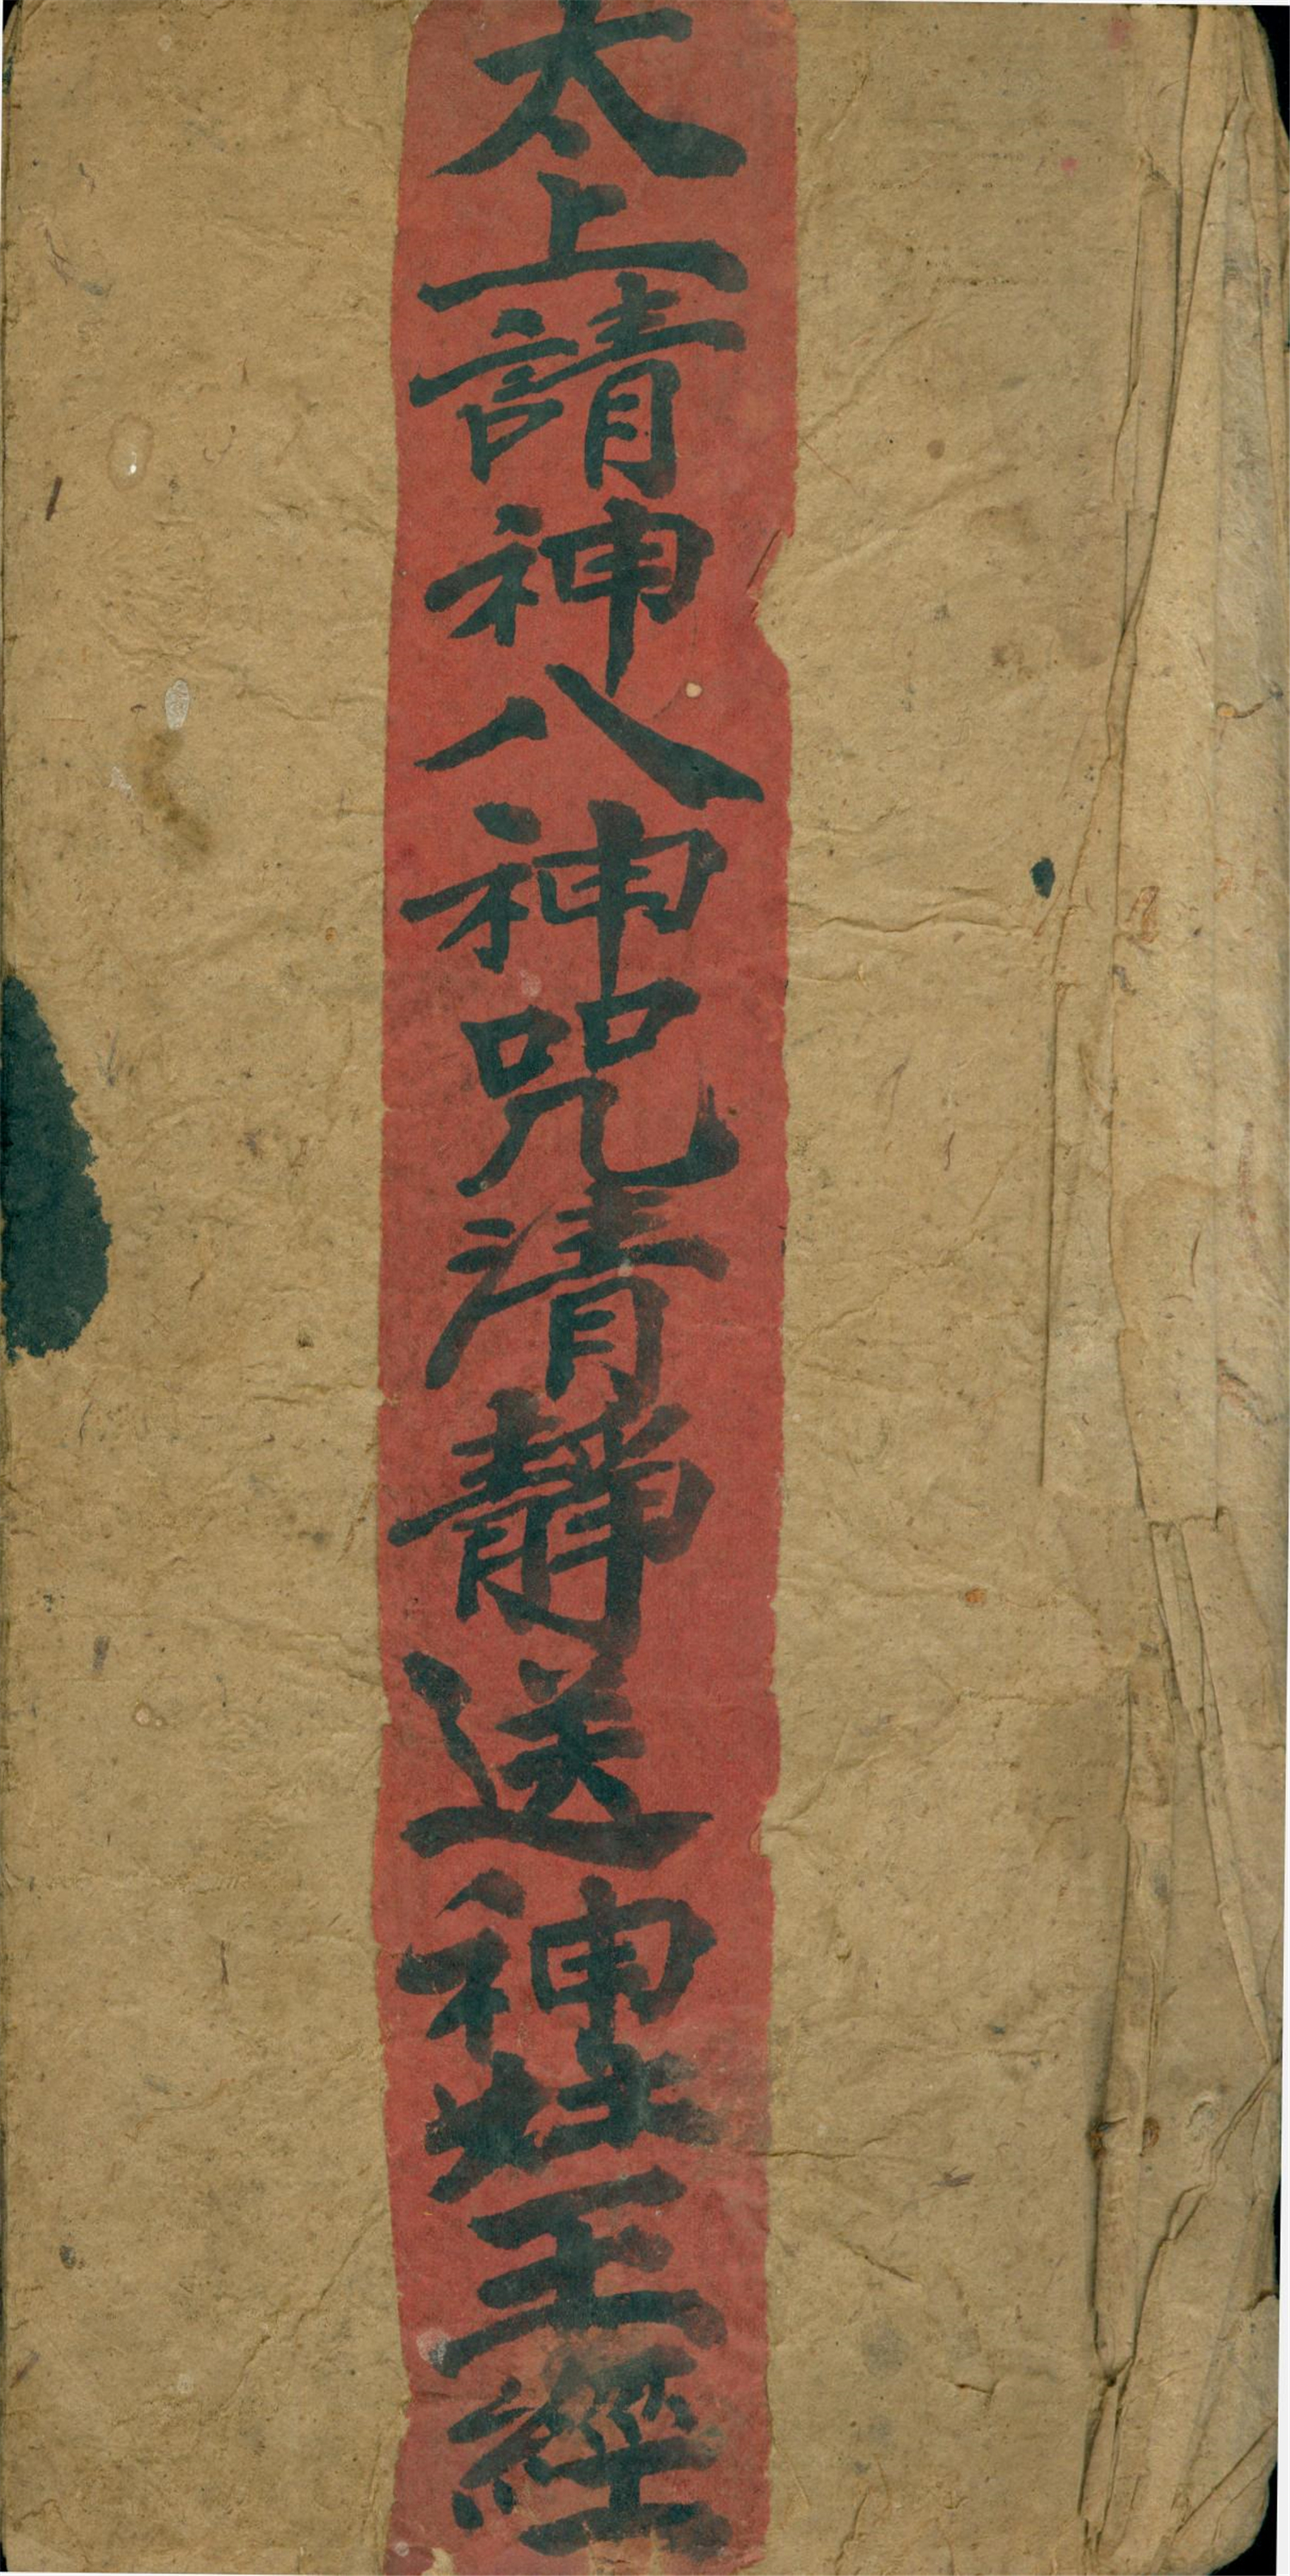 太上請神八神咒清靜送神灶王經